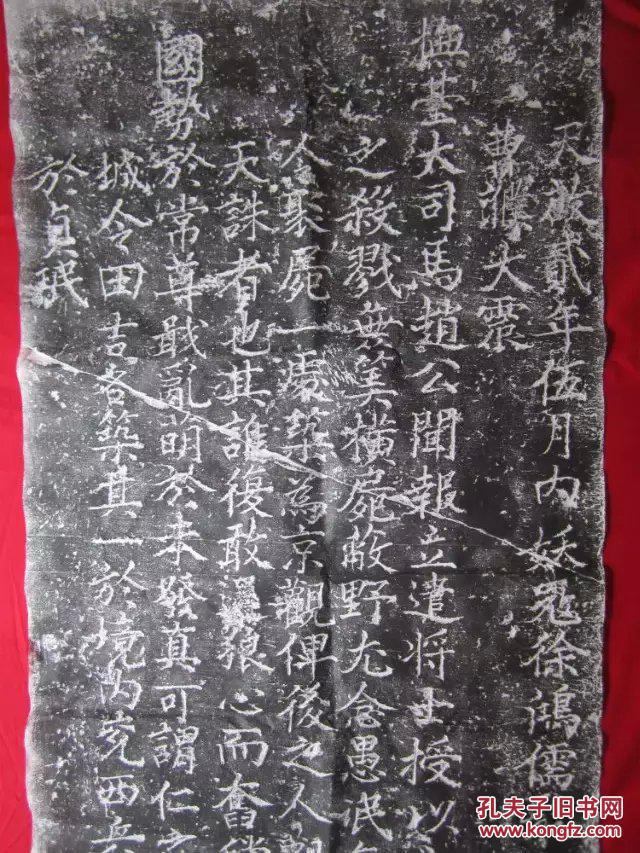 天啟貳年伍月內妖寇徐鴻儒
曹濮大震
撫臺大司馬趙公聞報立遣將士授以
之殺戮無筭橫屍蔽野尤念愚氓
冷聚屍一處築為京觀俾後之人
天誅者也其誰復敢逞狼心而奮
國勢於常尊戢亂萌於未發真可謂仁
城令田吉咨築其一於境內兗西兵
於貞珉
孔夫子旧书网
www.kongfz.com